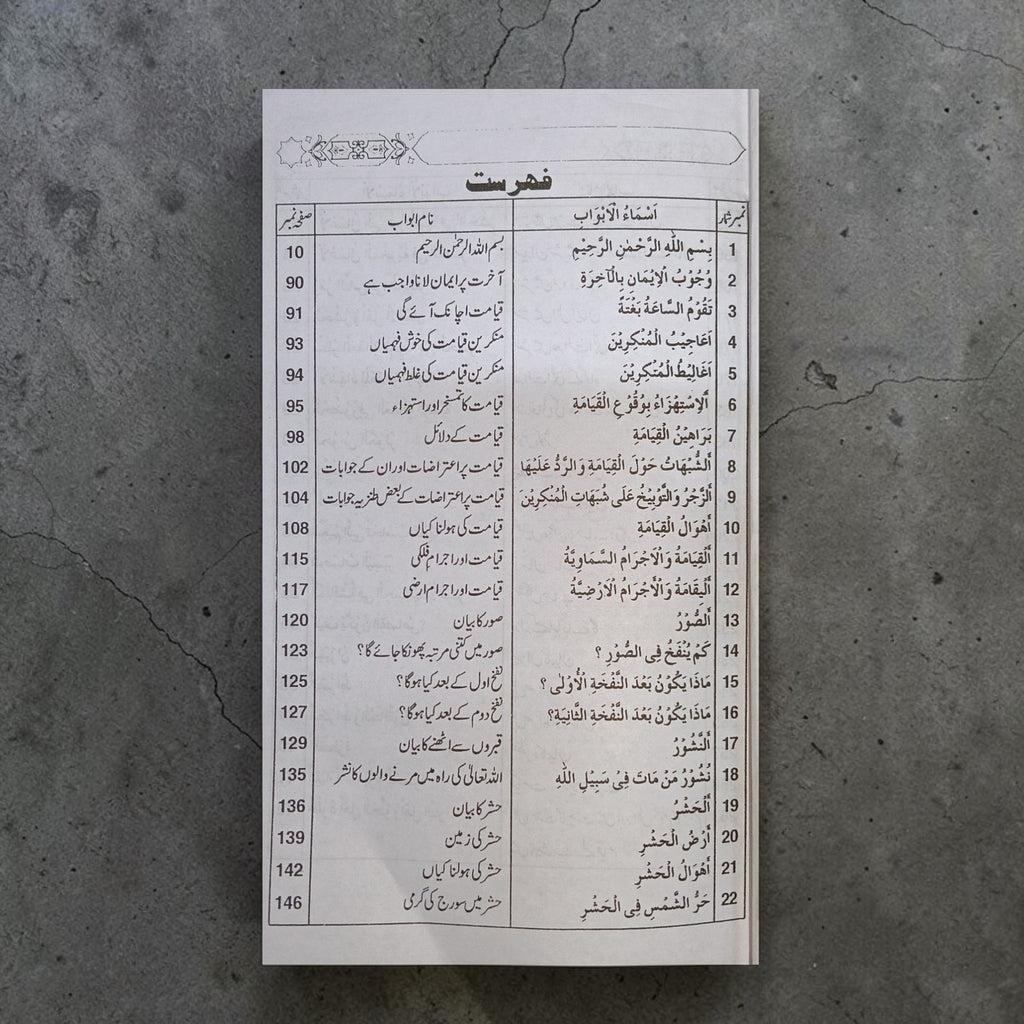 فهرست
نمبر شمار اَسْمَاءُ الْاَبْوَابِ نام ابواب صفحہ نمبر
1 بِسْمِ اللّٰهِ الرَّحْمٰنِ الرَّحِيْمِ بسم اللہ الرحمٰن الرحیم 10
2 وُجُوْبُ الْاِيْمَانِ بِالْآخِرَةِ آخرت پر ایمان لانا واجب ہے 90
3 تَقُوْمُ السَّاعَةُ بَغْتَةً قیامت اچانک آئے گی 91
4 اَعَاجِيْبُ الْمُنْكِرِيْنَ منکرین قیامت کی خوش فہمیاں 93
5 اَغَالِيْطُ الْمُنْكِرِيْنَ منکرین قیامت کی غلط فہمیاں 94
6 اَلْاِسْتِهْزَاءُ بِوُقُوْعِ الْقِيَامَةِ قیامت کا تمسخر اور استہزاء 95
7 بَرَاهِيْنُ الْقِيَامَةِ قیامت کے دلائل 98
8 اَلشُّبُهَاتُ حَوْلَ الْقِيَامَةِ وَالرَّدُّ عَلَيْهَا قیامت پر اعتراضات اور ان کے جوابات 102
9 اَلزَّجْرُ وَالتَّوْبِيْخُ عَلَى شُبُهَاتِ الْمُنْكِرِيْنَ قیامت پر اعتراضات کے بعض طنزیہ جوابات 104
10 أَهْوَالُ الْقِيَامَةِ قیامت کی ہولناکیاں 108
11 اَلْقِيَامَةُ وَالْاَجْرَامُ السَّمَاوِيَّةُ قیامت اور اجرام فلکی 115
12 اَلْيقَامَةُ وَالْأَجْرَامُ الْاَرْضِيَّةُ قیامت اور اجرام ارضی 117
13 اَلصُّوْرُ صور کا بیان 120
14 كَمْ يُنْفَخُ فِى الصُّوْرِ ؟ صور میں کتنی مرتبہ پھونکا جائے گا؟ 123
15 مَاذَا يَكُوْنُ بَعْدَ النَّفْخَةِ الْأُوْلٰى ؟ نفخ اول کے بعد کیا ہوگا؟ 125
16 مَاذَا يَكُوْنُ بَعْدَ النَّفْخَةِ الثَّانِيَةِ؟ نفخ دوم کے بعد کیا ہوگا؟ 127
17 اَلنُّشُوْرُ قبروں سے اٹھنے کا بیان 129
18 نُشُوْرُ مَنْ مَاتَ فِىْ سَبِيْلِ اللّٰهِ اللہ تعالیٰ کی راہ میں مرنے والوں کا نشر 135
19 اَلْحَشْرُ حشر کا بیان 136
20 أَرْضُ الْحَشْرِ حشر کی زمین 139
21 أَهْوَالُ الْحَشْرِ حشر کی ہولناکیاں 142
22 حَرُّ الشَّمْسِ فِى الْحَشْرِ حشر میں سورج کی گرمی 146